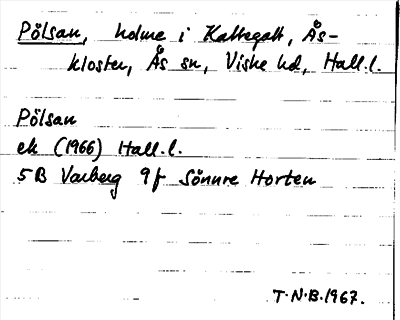 Pölsan, holme i Kattegatt, Ås-
kloster, Ås sn, Viske hd, Hall.l.
Pölsan
ek (1966) Hall.l.
5B Varberg 9f Sönnre Horten
T.N.B.1967.